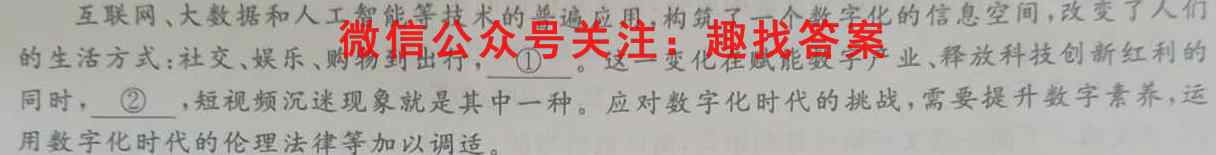 互联网、大数据和人工智能等技术的普遍应用,构筑了一个数字化的信息空间,改变了人们
微信公众号关注：趣找答案
的生活方式:社交、娱乐、购物到出行, ① 。这一变化在赋能数字产业、释放科技创新红利的
同时, ② ,短视频沉迷现象就是其中一种。应对数字化时代的挑战,需要提升数字素养,运
用数字化时代的伦理法律等加以调适。